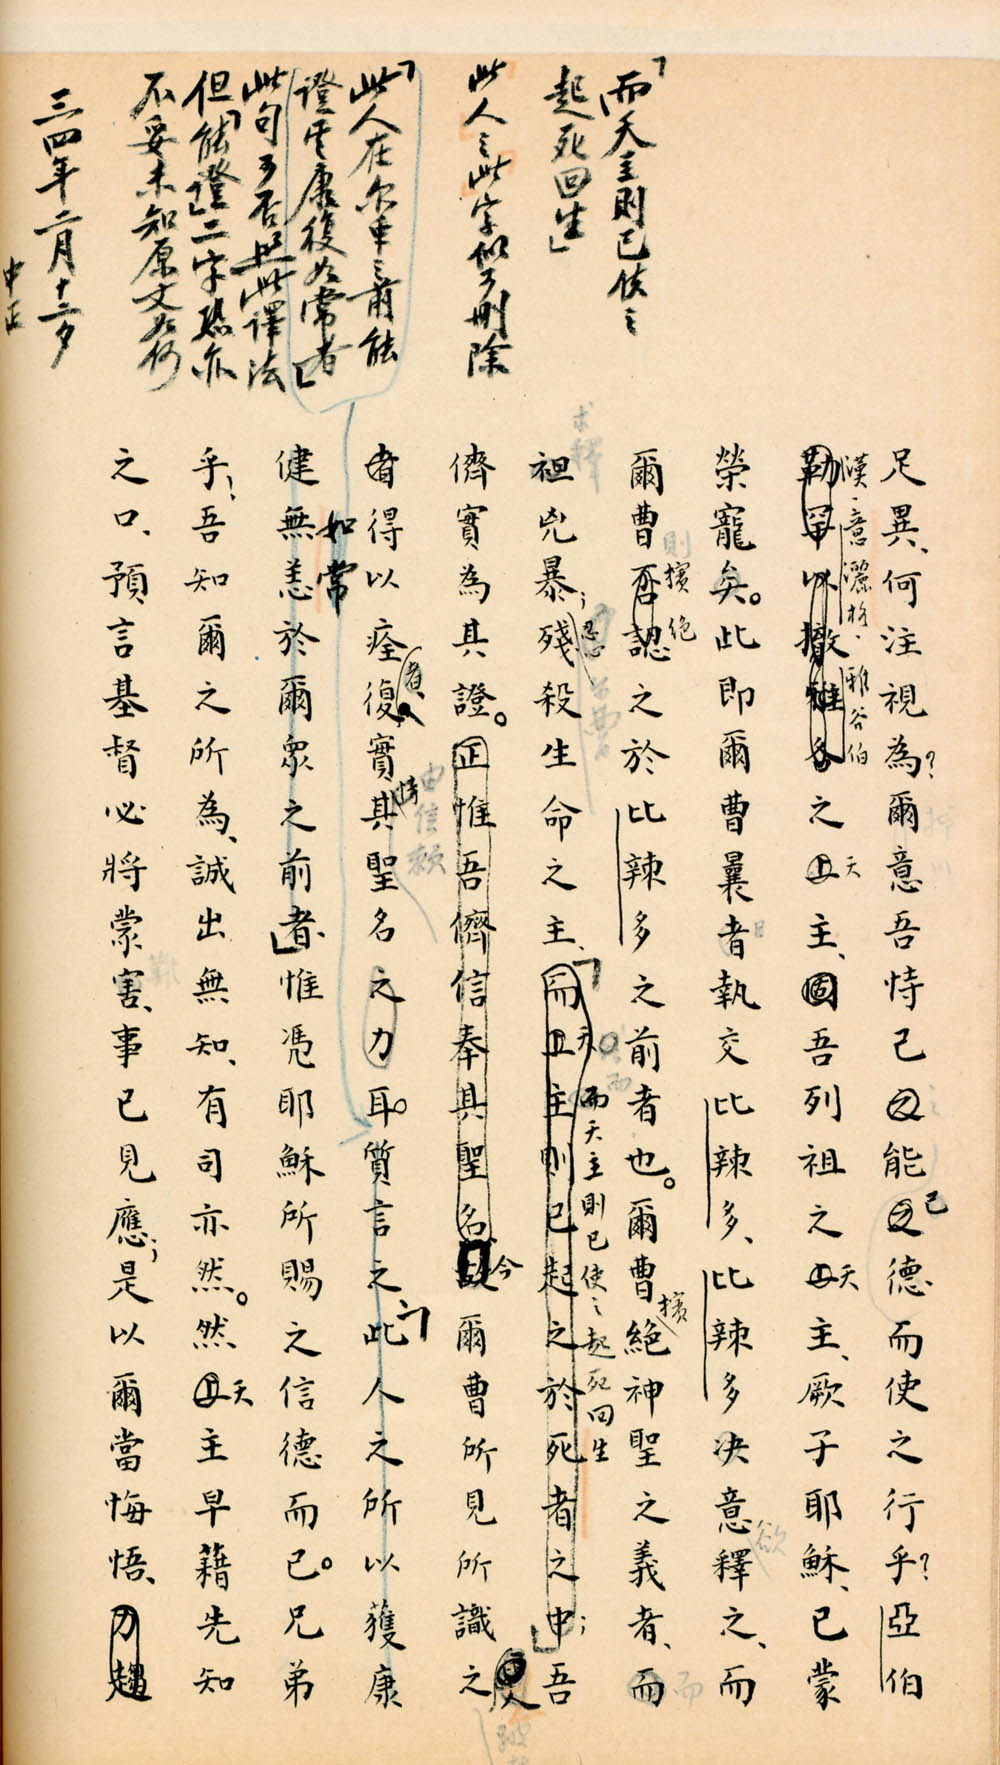 「而天主則已使之
起死回生」
此人之此字似可刪除
「此人在尔曹之前能
證其康復如常者」
此句可否照此譯法
但「能證」二字恐亦
不妥未知原文如何
三四年二月十二夕
中正
足異、何注視為?爾意吾恃己之能之德而使之行乎?亞伯
漢、意灑格、雅谷伯
勒罕以撒雅各之上主、固吾列祖之上主、厥子耶穌、已蒙
天
天
己
榮寵矣。此即爾曹曩者執交比辣多、比辣多決意釋之、而
欲
爾曹否認之於比辣多之前者也。爾曹絕神聖之義者、而
則擯絕
擯
求釋
袒兇暴;殘殺生命之主、「而上主則已起之於死者之中;」吾
忍
天
而天主則已使之起死回生
儕實為其證。正惟吾儕信奉其聖名故爾曹所見所識之
今
者得以痊復,實其聖名之力耳。質言之「此人之所以獲康
者、
恃
由信賴
健無恙於爾眾之前者」惟憑耶穌所賜之信德而已。兄弟
如常
乎!吾知爾之所為、誠出無知、有司亦然。然上主早藉先知
天
之口、預言基督必將蒙害、事已見應;是以爾當悔悟、力趨